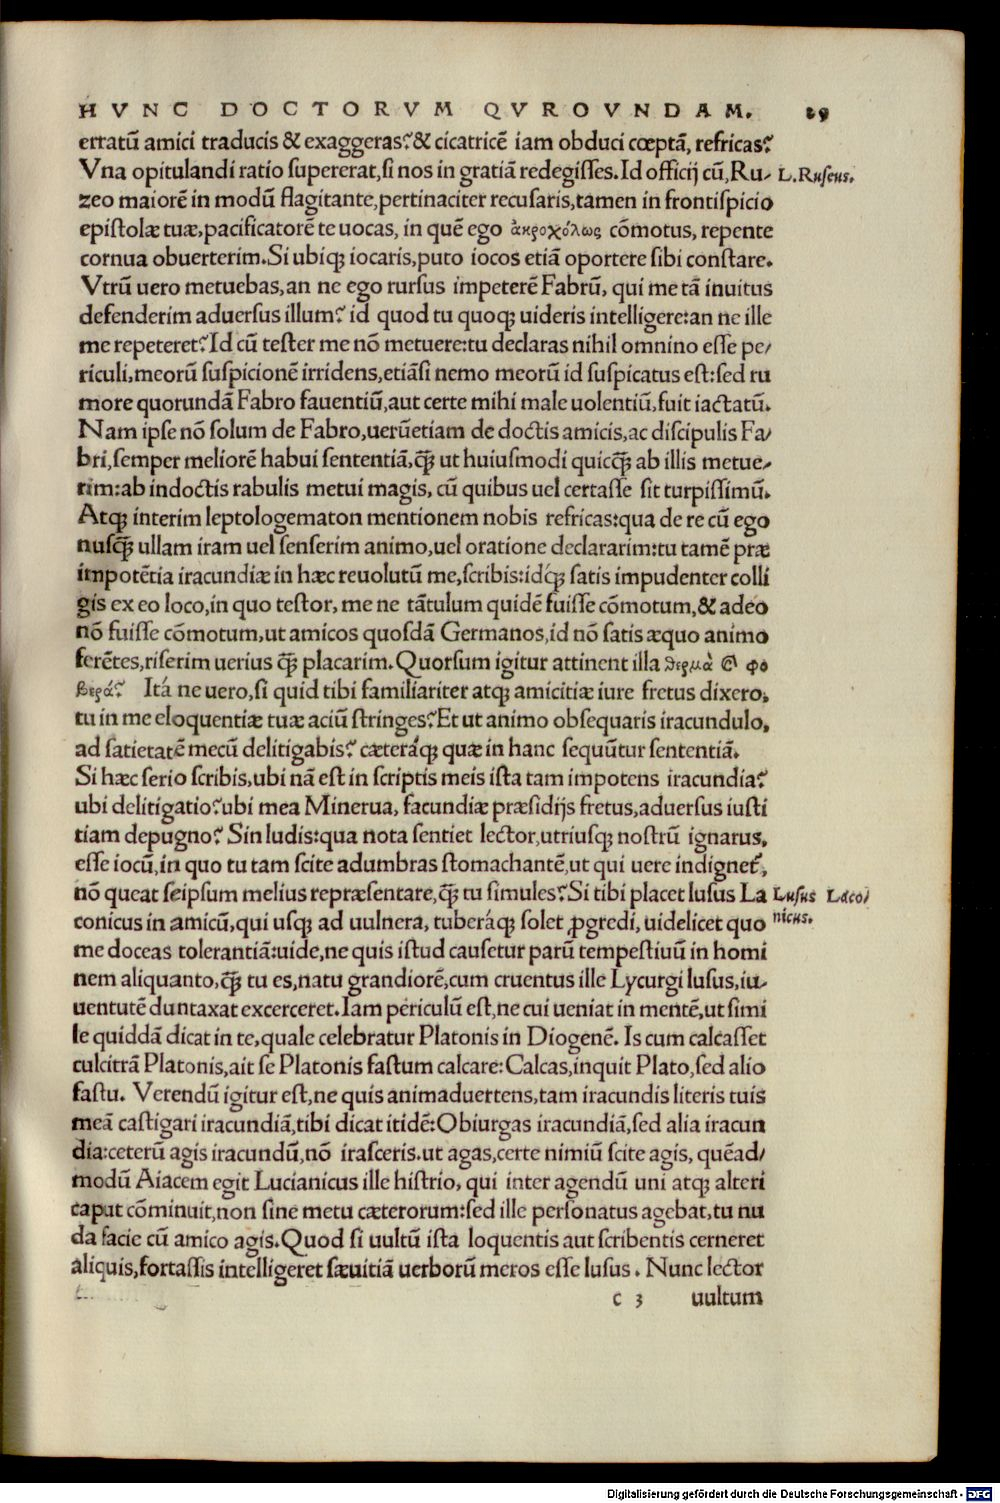 HVNC DOCTORVM QVROVNDAM. 29
erratũ amici traducis & exaggeras? & cicatricẽ iam obduci cœptã, refricas?
Vna opitulandi ratio supererat, si nos in gratiã redegisses. Id officij cũ, Ru- L. Ruseus.
zeo maiorẽ in modũ flagitante, pertinaciter recusaris, tamen in frontispicio
epistolæ tuæ, pacificatorẽ te uocas, in quẽ ego ἀκροχόλως cõmotus, repente
cornua obuerterim. Si ubiqꝫ iocaris, puto iocos etiã oportere sibi constare.
Vtrũ uero metuebas, an ne ego rursus impeterẽ Fabrũ, qui me tã inuitus
defenderim aduersus illum? id quod tu quoqꝫ uideris intelligere: an ne ille
me repeteret? Id cũ tester me nõ metuere: tu declaras nihil omnino esse pe/
riculi, meorũ suspicionẽ irridens, etiãsi nemo meorũ id suspicatus est: sed ru
more quorundã Fabro fauentiũ, aut certe mihi male uolentiũ, fuit iactatũ.
Nam ipse nõ solum de Fabro, uerũetiam de doctis amicis, ac discipulis Fa/
bri, semper meliorẽ habui sententiã, q̃ꝫ ut huiusmodi quicq̃ꝫ ab illis metue-
rim: ab indoctis rabulis metui magis, cũ quibus uel certasse sit turpissimũ.
Atqꝫ interim leptologematon mentionem nobis refricas: qua de re cũ ego
nusq̃ꝫ ullam iram uel senserim animo, uel oratione declararim: tu tamẽ præ
impotẽtia iracundiæ in hæc reuolutũ me, scribis: idq́ꝫ satis impudenter colli
gis ex eo loco, in quo testor, me ne tãtulum quidẽ fuisse cõmotum, & adeo
nõ fuisse cõmotum, ut amicos quosdã Germanos, id nõ satis æquo animo
ferẽtes, riserim uerius q̃ꝫ placarim. Quorsum igitur attinent illa θερμὰ & φο
βερά? Itá ne uero, si quid tibi familiariter atqꝫ amicitiæ iure fretus dixero,
tu in me eloquentiæ tuæ aciũ stringes? Et ut animo obsequaris iracundulo,
ad satietatẽ mecũ delitigabis? cæteráqꝫ quæ in hanc sequũtur sententiã.
Si hæc serio scribis, ubi nã est in scriptis meis ista tam impotens iracundia?
ubi delitigatio? ubi mea Minerua, facundiæ præsidijs fretus, aduersus iusti
tiam depugno? Sin ludis: qua nota sentiet lector, utriusqꝫ nostrũ ignarus,
esse iocũ, in quo tu tam scite adumbras stomachantẽ, ut qui uere indignet᷑,
nõ queat seipsum melius repræsentare, q̃ꝫ tu simules? Si tibi placet lusus La Lusus Laco/
conicus in amicũ, qui usqꝫ ad uulnera, tuberáqꝫ solet ꝓgredi, uidelicet quo nicus.
me doceas tolerantiã: uide, ne quis istud causetur parũ tempestiuũ in homi
nem aliquanto, q̃ꝫ tu es, natu grandiorẽ, cum cruentus ille Lycurgi lusus, iu-
uentutẽ duntaxat excerceret. Iam periculũ est, ne cui ueniat in mentẽ, ut simi
le quiddã dicat in te, quale celebratur Platonis in Diogenẽ. Is cum calcasset
culcitrã Platonis, ait se Platonis fastum calcare: Calcas, inquit Plato, sed alio
fastu. Verendũ igitur est, ne quis animaduertens, tam iracundis literis tuis
meã castigari iracundiã, tibi dicat itidẽ: Obiurgas iracundiã, sed alia iracun
dia: ceterũ agis iracundũ, nõ irasceris. ut agas, certe nimiũ scite agis, quẽad/
modũ Aiacem egit Lucianicus ille histrio, qui inter agendũ uni atqꝫ alteri
caput cõminuit, non sine metu cæterorum: sed ille personatus agebat, tu nu
da facie cũ amico agis. Quod si uultũ ista loquentis aut scribentis cerneret
aliquis, fortassis intelligeret sæuitiã uerborũ meros esse lusus. Nunc lector
c 3 uultum
Digitalisierung gefördert durch die Deutsche Forschungsgemeinschaft - DFG